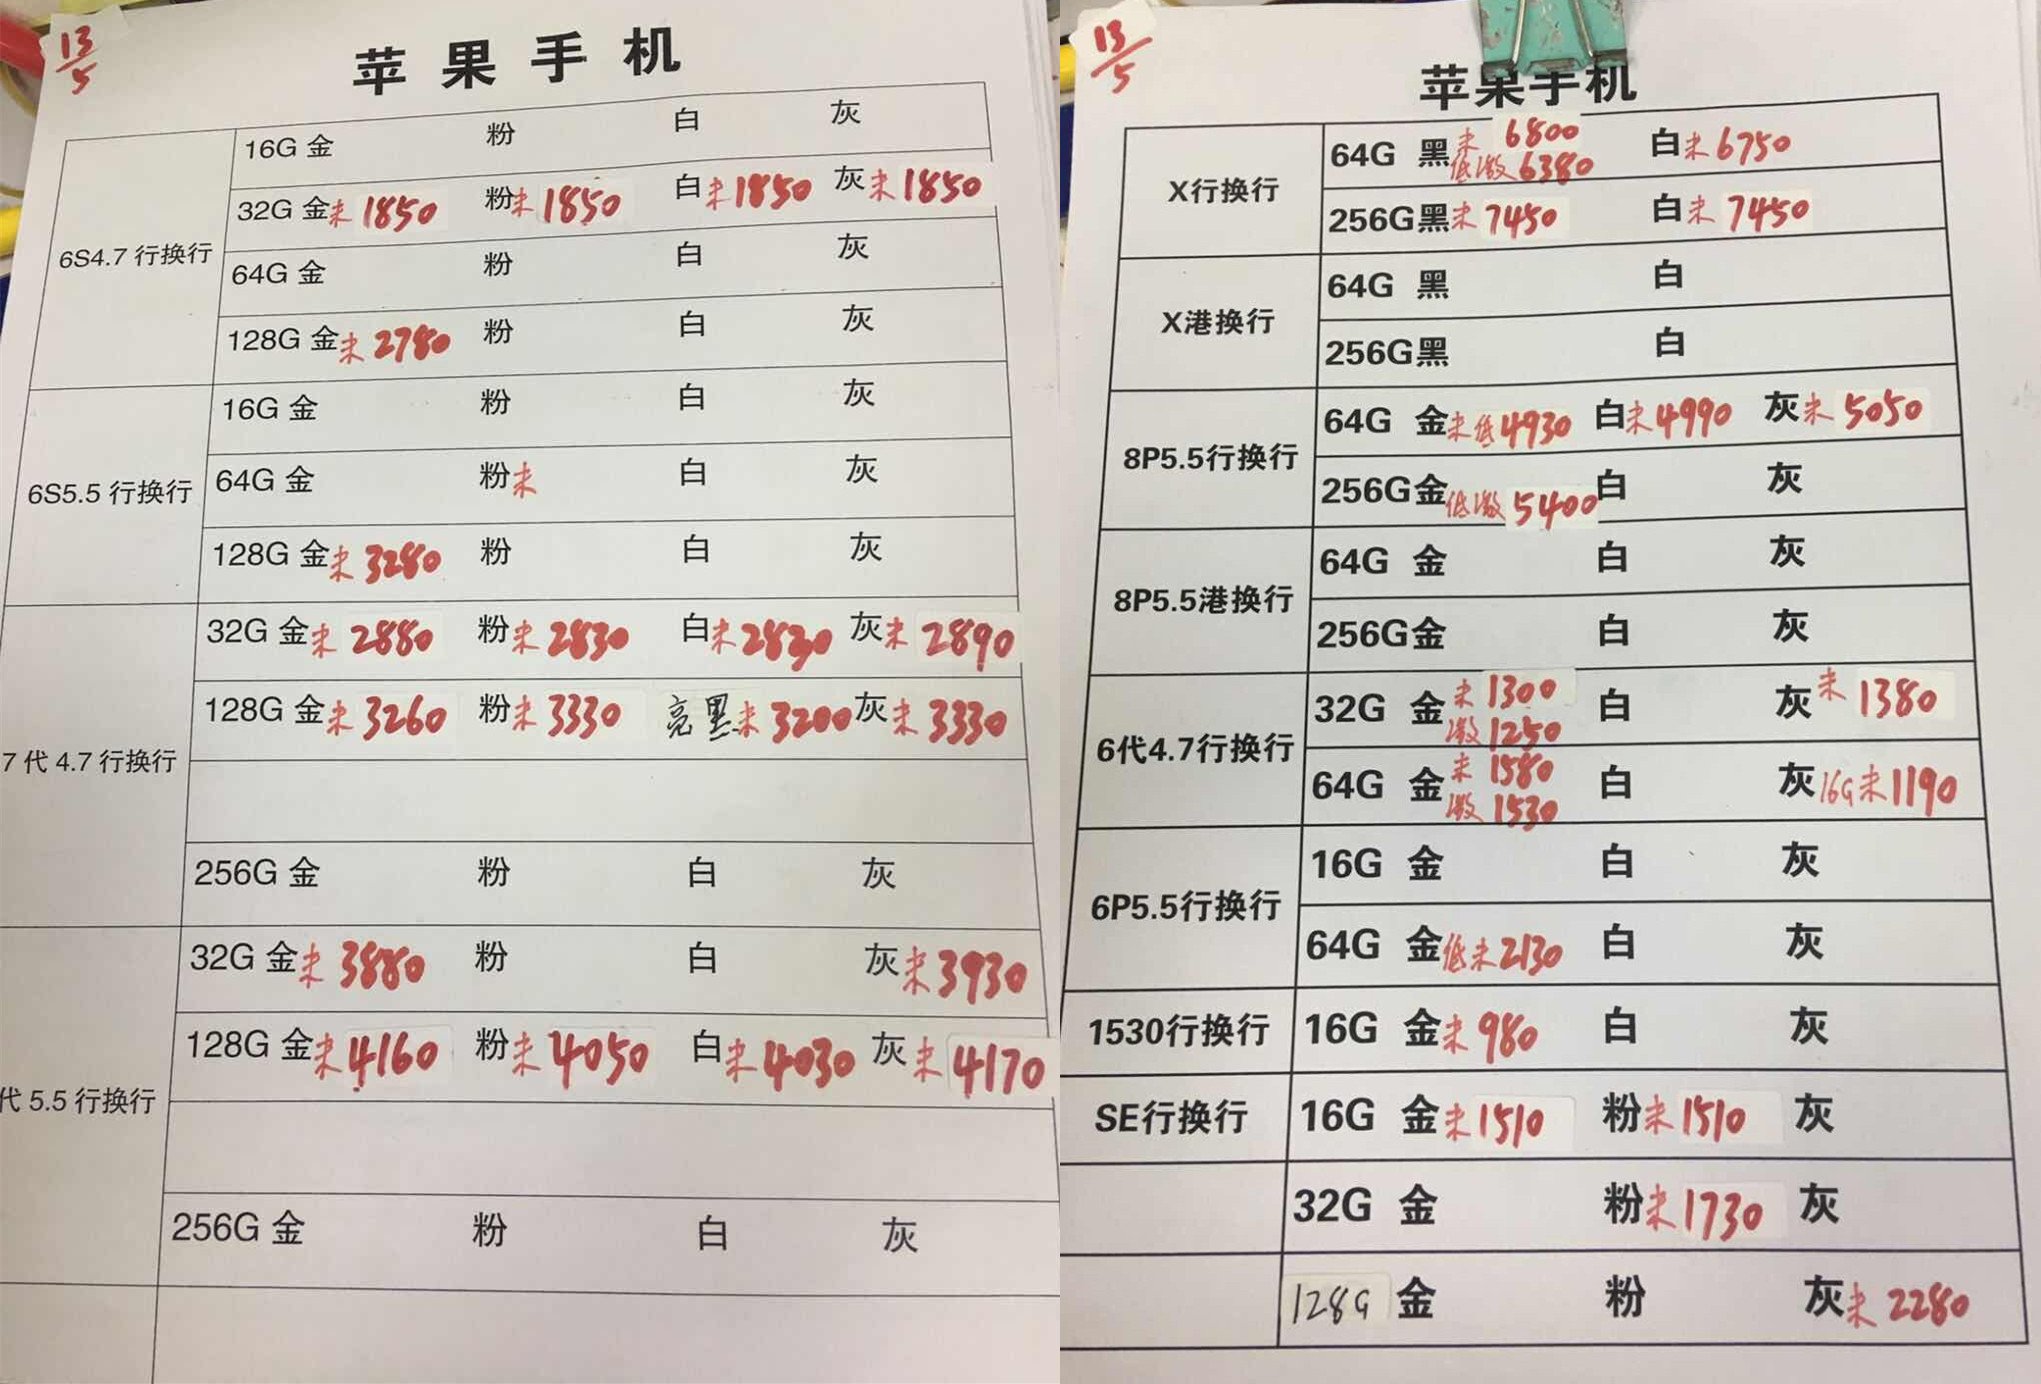 13/5
苹果手机
16G 金 粉 白 灰
32G 金未1850 粉未1850 白未1850 灰未1850
6S4.7 行换行
64G 金 粉 白 灰
128G 金未2780 粉 白 灰
16G 金 粉 白 灰
6S5.5 行换行
64G 金 粉未 白 灰
128G 金未3280 粉 白 灰
32G 金未2880 粉未2830 白未2830 灰未2890
128G 金未3260 粉未3330 亮黑未3200 灰未3330
7代 4.7 行换行
256G 金 粉 白 灰
32G 金未3880 粉 白 灰未3930
128G 金未4160 粉未4050 白未4030 灰未4170
代 5.5 行换行
256G 金 粉 白 灰
13/5
苹果手机
X行换行
64G 黑未6800 白未6750
低激6380
256G黑未7450 白未7450
X港换行
64G 黑 白
256G黑 白
8P5.5行换行
64G 金未低4930 白未4990 灰未5050
256G金低激5400 白 灰
8P5.5港换行
64G 金 白 灰
256G金 白 灰
6代4.7行换行
32G 金未1300 白 灰未1380
激1250
64G 金未1580 白 灰16G未1190
激1530
6P5.5行换行
16G 金 白 灰
64G 金低未2130 白 灰
1530行换行 16G 金未980 白 灰
SE行换行 16G 金未1510 粉未1510 灰
32G 金 粉未1730 灰
128G 金 粉 灰未2280